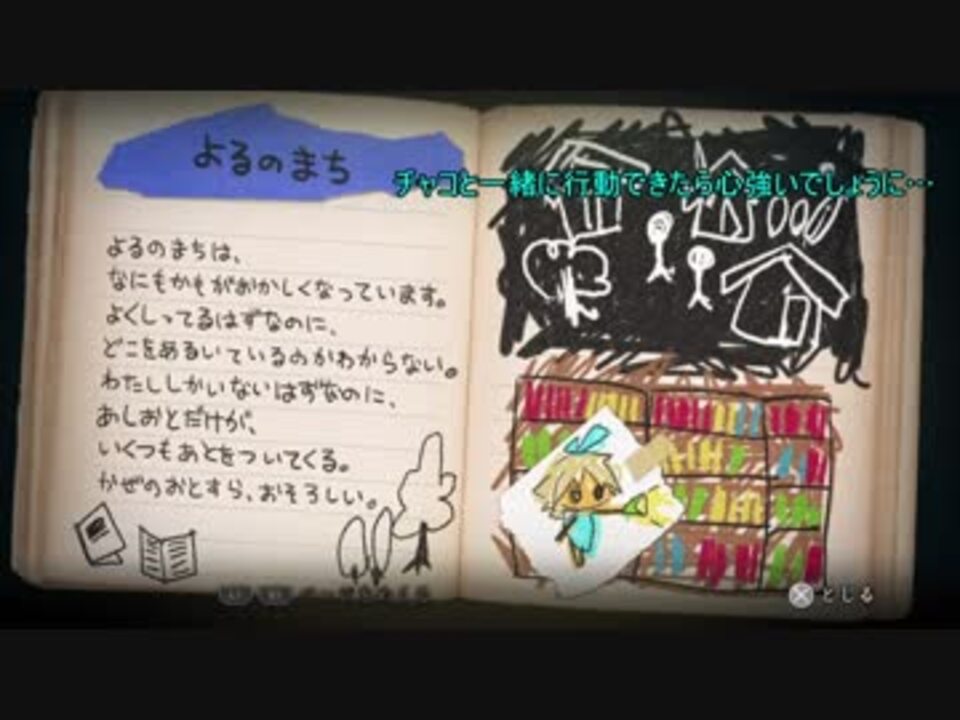 よるのまち
チャコと一緒に行動できたら心強いでしょうに…
よるのまちは、
なにもかもがおかしくなっています。
よくしってるはずなのに、
どこをあるいているのかわからない。
わたししかいないはずなのに、
あしおとだけが、
いくつもあとをついてくる。
かぜのおとすら、おそろしい。
とじる